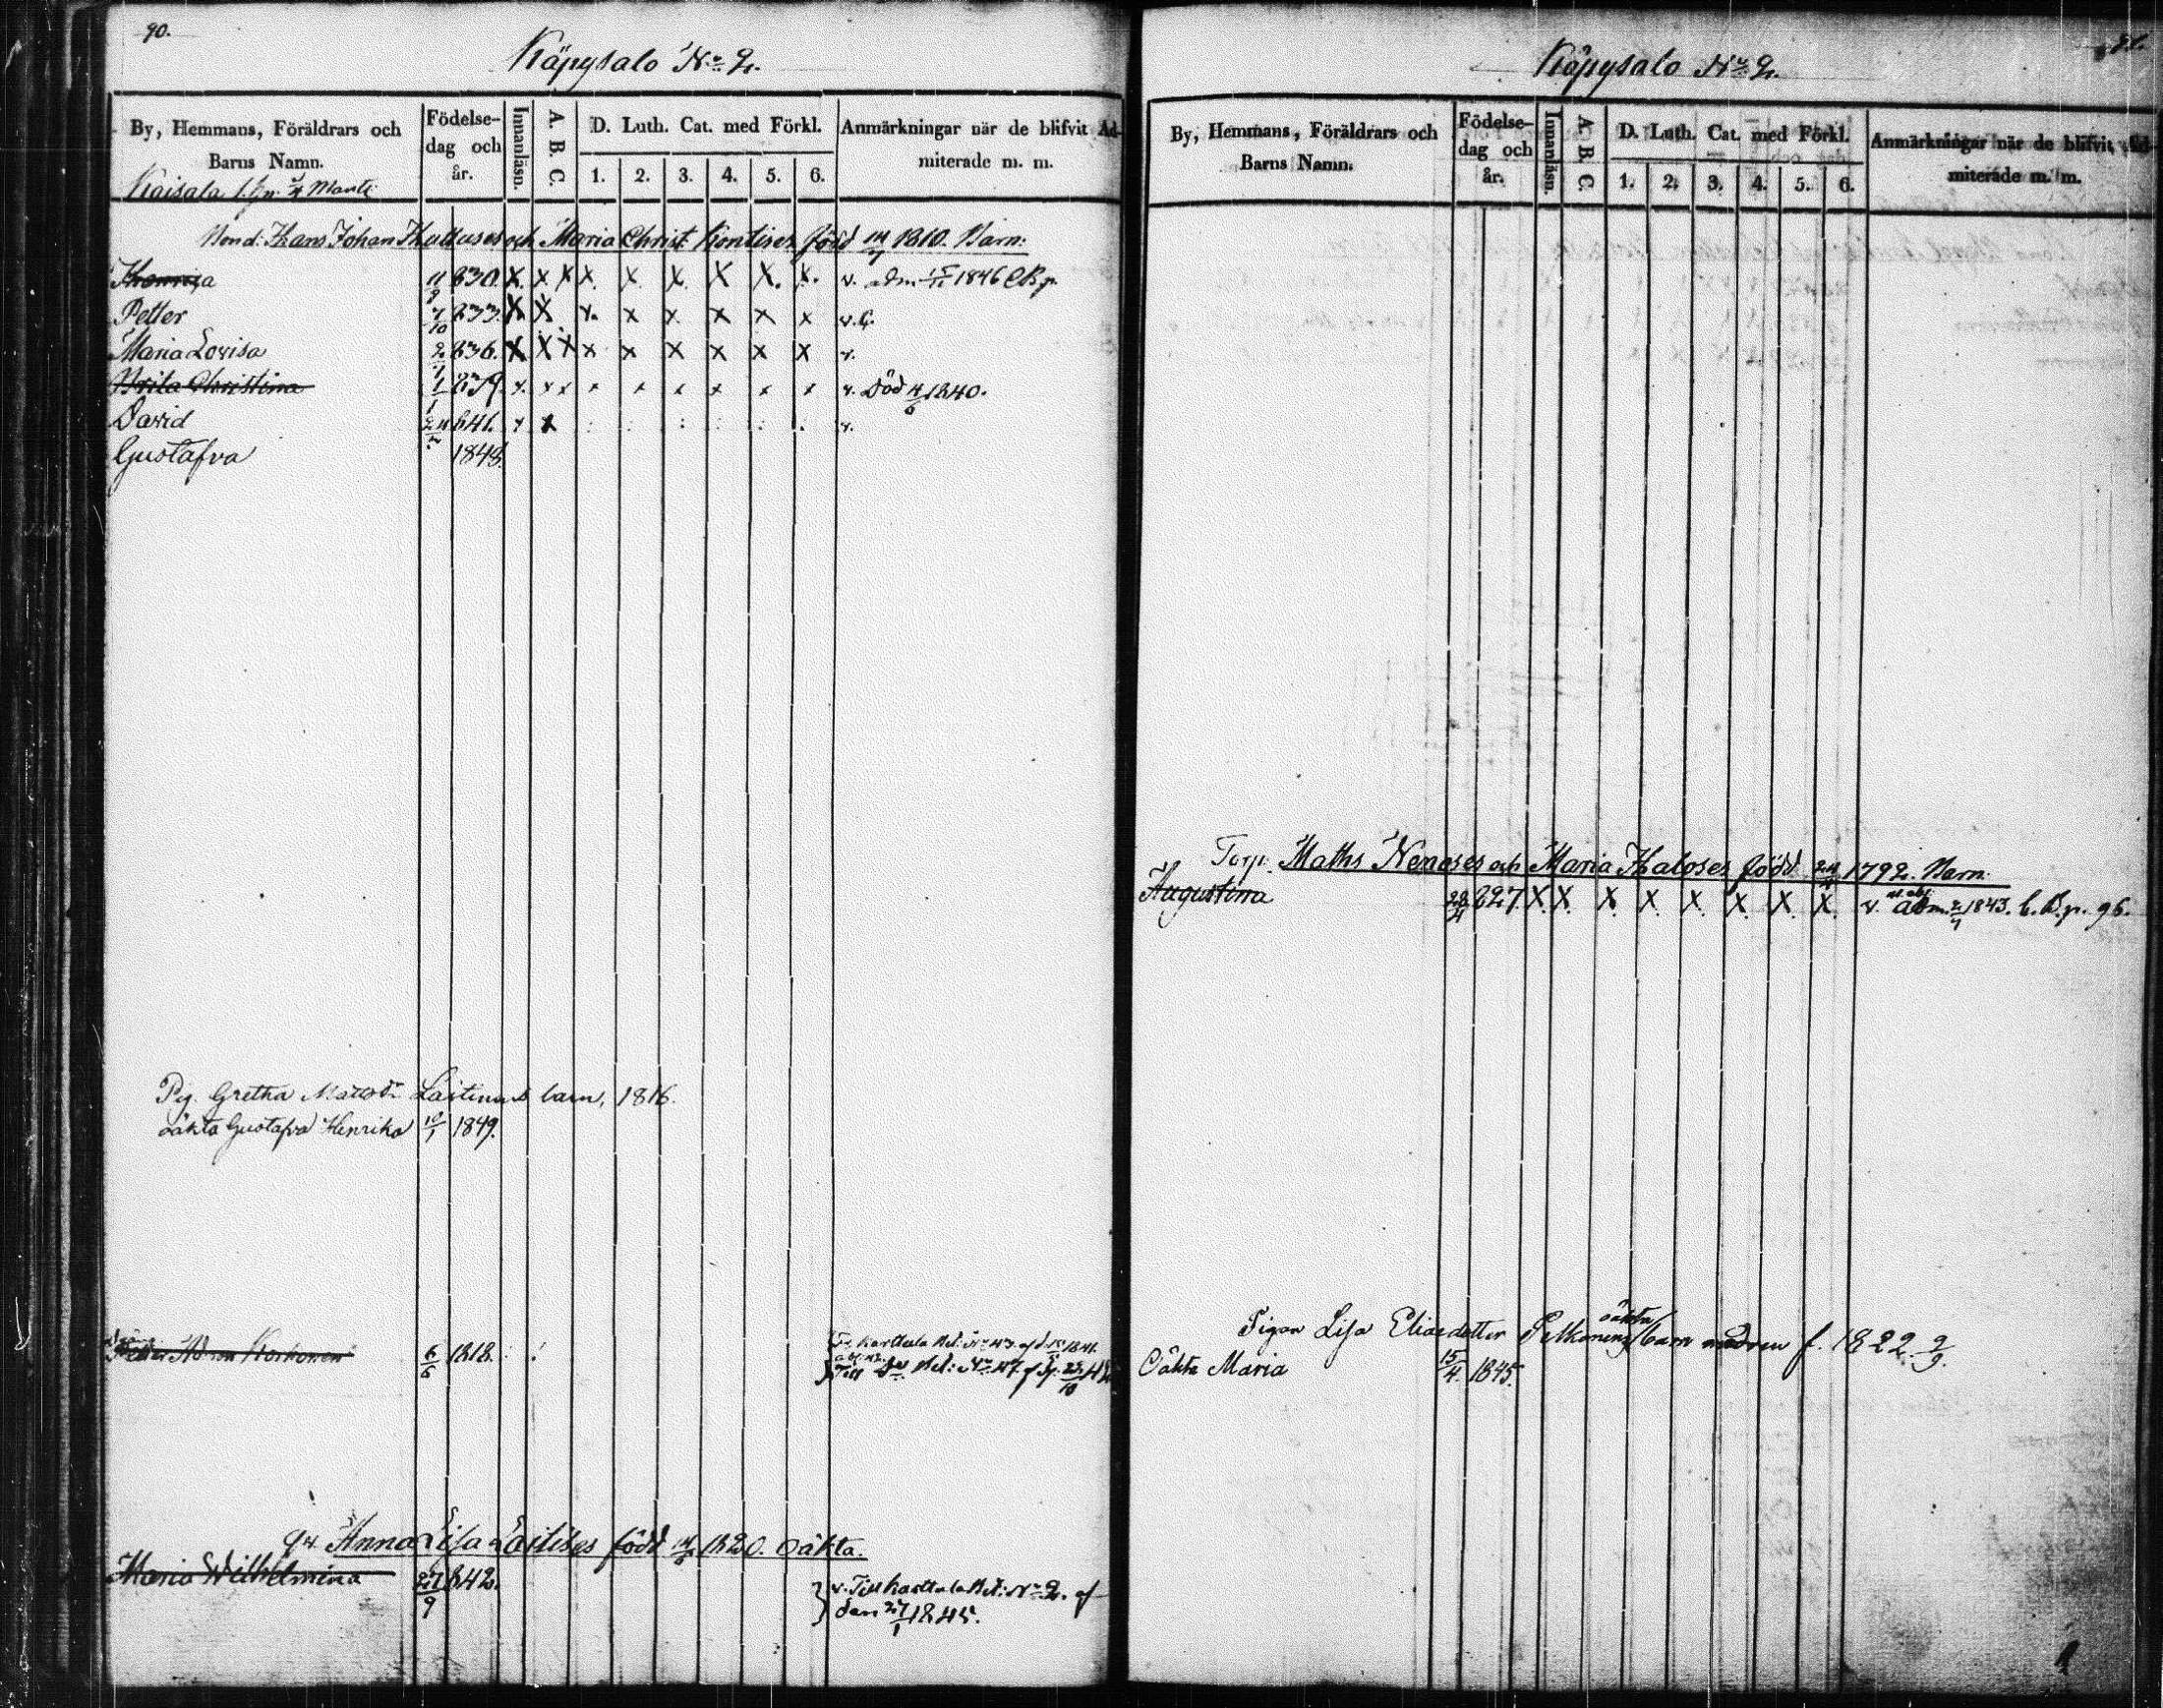 90.
Käpysalo No 2.
By, Hemmans, Föräldrars och Barns Namn.
Födelse-dag och år.
Innanläsn.
A. B. C.
D. Luth. Cat. med Förkl.
1. 2. 3. 4. 5. 6.
Anmärkningar när de blifvit Admiterade m. m.
Bond: Hans Johan och Maria Christ. Kontises född 14/7 1810. Barn:
11/9 830. X. X X X. X X. X X. X. v. adm 1846 CB p.
Petter 7/10 833. X X x. x x. x x x v.
Maria Lovisa 2/1 836. X X X x x X X x X v.
Brita Christina 1/1 839. x. x x x x x x x x v. Död 4/6 1840.
David 24/7 841. x x v.
Gustafva 1848.
Pig. Gretha Mattsdr Laitinens barn, 1816.
oäkta Gustafva Henrika 10/1 1849.
Korhonen 6/6 1818.
Anna Lisa Laitises född 1820. oäkta.
Maria Wilhelmina 27/9 842.
v. Till Karttula Bet: No 2. af
den 27/1 1845.
Käpysalo No 2.
By, Hemmans, Föräldrars och Barns Namn.
Födelse-dag och år.
Innanläsn.
A. B. C
D. Luth. Cat. med Förkl.
1. 2. 3. 4. 5. 6.
Anmärkningar när de blifvit Admiterade m. m.
Torp. Maths och Maria Haloses född 1792. Barn:
Augustina 827. X X. X. X. X. X. X. X. v. adm. 1843. C. B. p. 96.
Pigan Lisa Eliasdotter Pelkonens oäkta barn modren f. 1822. 2/9.
Oäkta Maria 15/4. 1845.